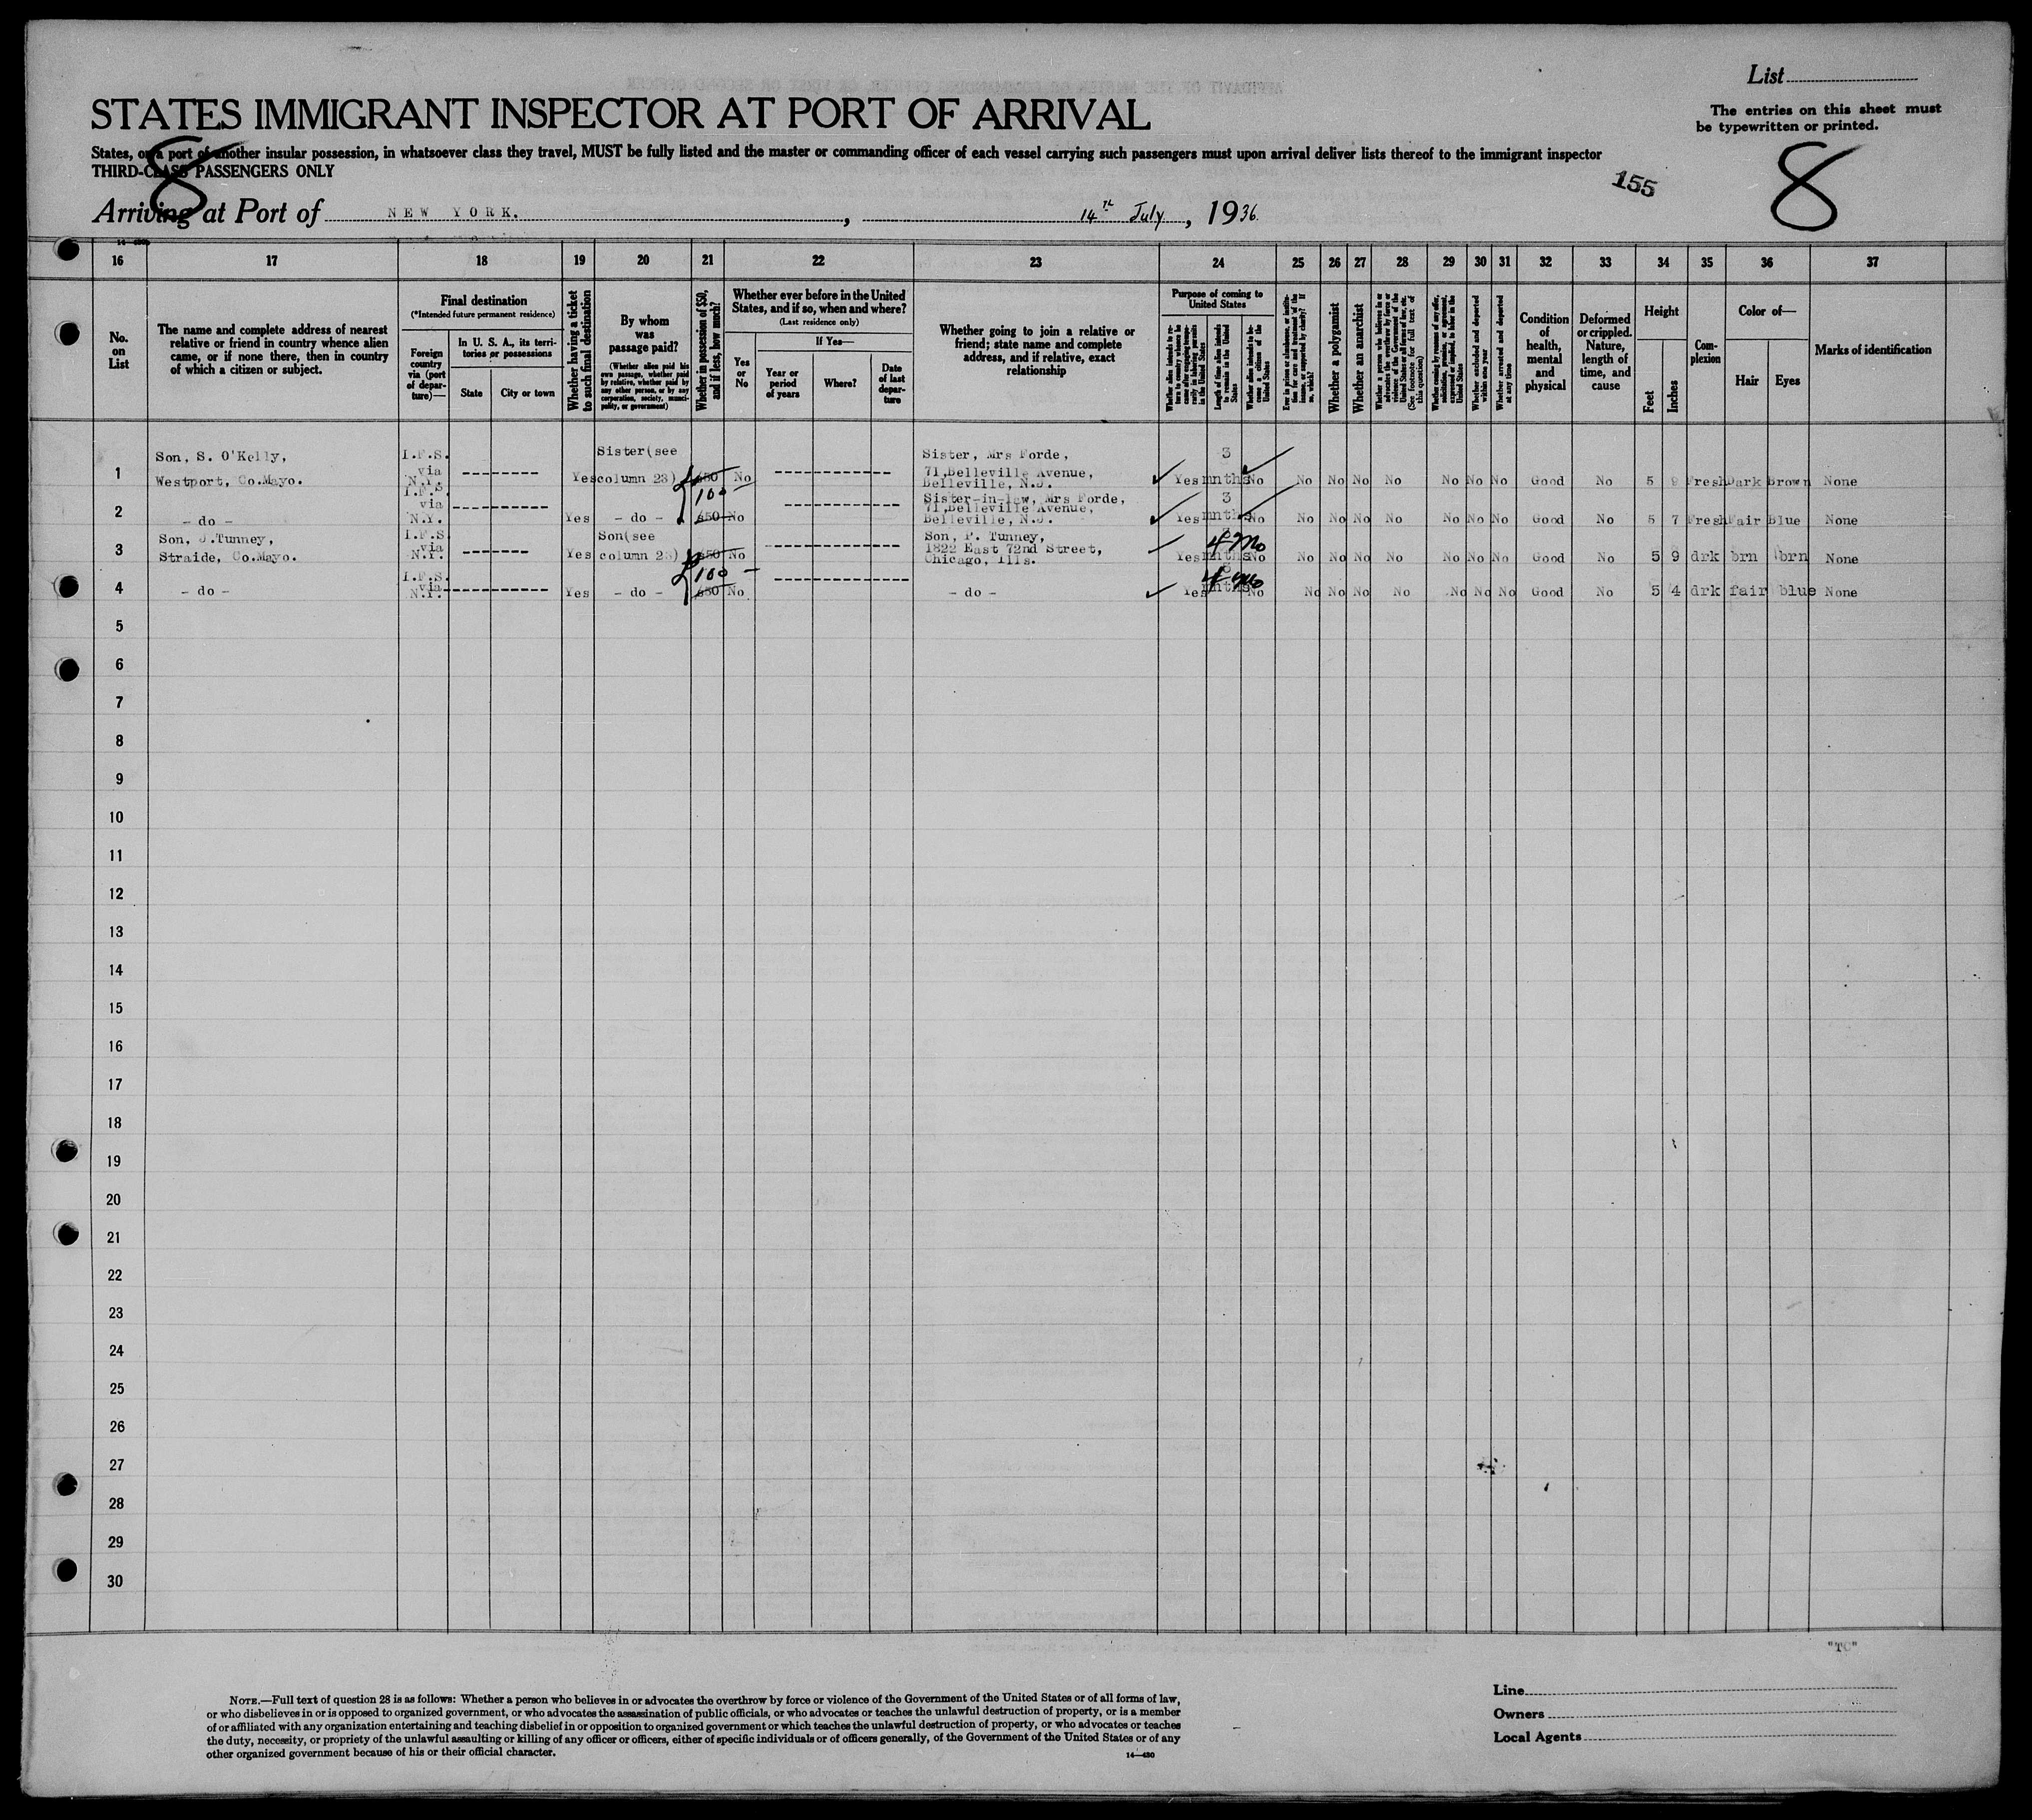 List
STATES IMMIGRANT INSPECTOR AT PORT OF ARRIVAL
The entries on this sheet must
be typewritten or printed.
States, or a port of another insular possession, in whatsoever class they travel, MUST be fully listed and the master or commanding officer of each vessel carrying such passengers must upon arrival deliver lists thereof to the immigrant inspector
THIRD-CLASS PASSENGERS ONLY
8
155
8
Arriving at Port of NEW YORK. , 14th July, 1936.
16 17 18 19 20 21 22 23 24 25 26 27 28 29 30 31 32 33 34 35 36 37
No.
on
List
The name and complete address of nearest
relative or friend in country whence alien
came, or if none there, then in country
of which a citizen or subject.
Final destination
(*Intended future permanent residence)
Foreign
country
via (port
of depar-
ture)—
In U. S. A., its terri-
tories or possessions
State
City or town
Whether having a ticket
to such final destination
By whom
was
passage paid?
(Whether alien paid his
own passage, whether paid
by relative, whether paid by
any other person, or by any
corporation, society, munici-
pality, or government)
Whether in possession of $50,
and if less, how much?
Whether ever before in the United
States, and if so, when and where?
(Last residence only)
Yes
or
No
If Yes—
Year or
period
of years
Where?
Date
of last
depar-
ture
Whether going to join a relative or
friend; state name and complete
address, and if relative, exact
relationship
Purpose of coming to
United States
Whether alien intends to re-
turn to country whence he
came after engaging tempo-
rarily in laboring pursuits
in the United States
Length of time alien intends
to remain in the United
States
Whether alien intends to be-
come a citizen of the
United States
Ever in prison or almshouse, or institu-
tion for care and treatment of the
insane, or supported by charity? If
so, which?
Whether a polygamist
Whether an anarchist
Whether a person who believes in or
advocates the overthrow by force or
violence of the Government of the
United States or all forms of law, etc.
(See footnote for full text of
this question)
Whether coming by reason of any offer,
solicitation, promise, or agreement,
expressed or implied, to labor in the
United States
Whether excluded and deported
within one year
Whether arrested and deported
at any time
Condition
of
health,
mental
and
physical
Deformed
or crippled.
Nature,
length of
time, and
cause
Height
Feet
Inches
Com-
plexion
Color of—
Hair
Eyes
Marks of identification
1 Son, S. O'Kelly,
Westport, Co.Mayo.
I.F.S.
via
N.Y.
Yes
Sister(see
column 23)
£50
100
No
Sister, Mrs Forde,
71,Belleville Avenue,
Belleville, N.J.
Yes 3
mnths No No No No No No No No Good No 5 Fresh Dark Brown None
2 - do -
I.F.S.
via
N.Y.
Yes - do - £50 No
Sister-in-law, Mrs Forde,
71,Belleville Avenue,
Belleville, N.J.
Yes 3
mnths No No No No No No No No Good No 5 7 Fresh Fair Blue None
3 Son, J.Tunney,
Straide, Co.Mayo.
I.F.S.
via
N.Y.
Yes
Son(see
column 23)
£50
100
No
Son, P. Tunney,
1822 East 72nd Street,
Chicago, Ills.
Yes 4 mo
mnths No No No No No No No No Good No 5 9 drk brn brn None
4 - do -
I.F.S.
via
N.Y.
Yes - do - £50 No
- do -
Yes 4 mo
mnths No No No No No No No No Good No 5 4 drk fair blue None
5
6
7
8
9
10
11
12
13
14
15
16
17
18
19
20
21
22
23
24
25
26
27
28
29
30
"TC"
NOTE.—Full text of question 28 is as follows: Whether a person who believes in or advocates the overthrow by force or violence of the Government of the United States or of all forms of law,
or who disbelieves in or is opposed to organized government, or who advocates the assassination of public officials, or who advocates or teaches the unlawful destruction of property, or is a member
of or affiliated with any organization entertaining and teaching disbelief in or opposition to organized government or which teaches the unlawful destruction of property, or who advocates or teaches
the duty, necessity, or propriety of the unlawful assaulting or killing of any officer or officers, either of specific individuals or of officers generally, of the Government of the United States or of any
other organized government because of his or their official character.
14—430
Line
Owners
Local Agents